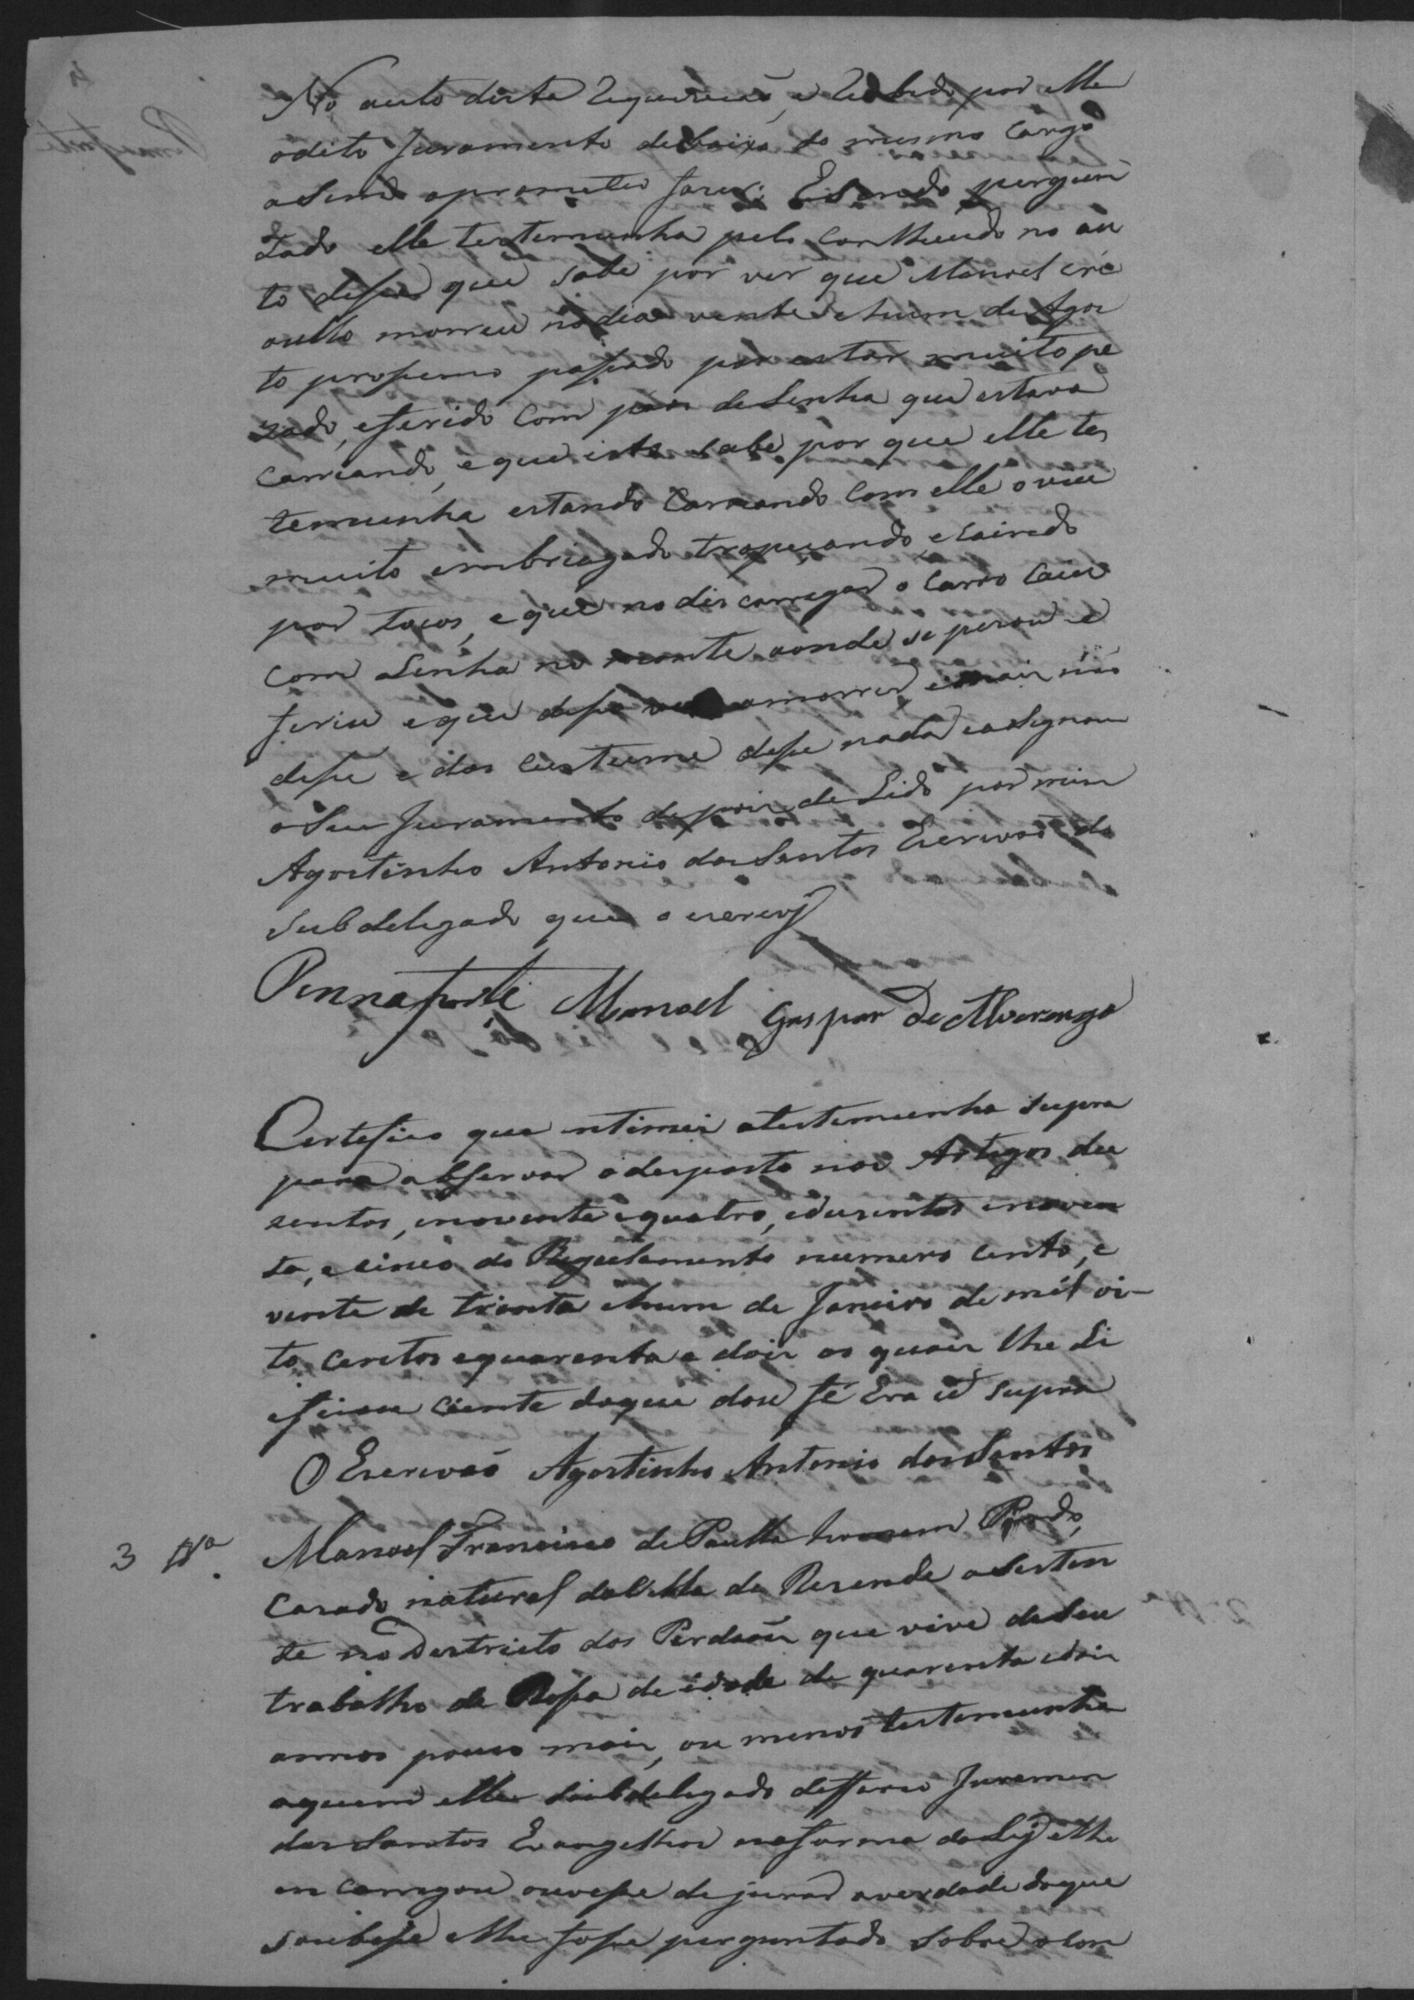 No auto desta Enquirição, e Recebido por elle
odito Juramento debaixo do mesmo Cargo
asim o prometeo fazer. E Sendo pergun
tado elle testemunha pelo Conthiudo no au
to disse que sabe por ver que Manoel cri
oullo morreu no dia vente e hum de Agos
to proximo passado por estar muito pe
zado, eferido com paos de Lenha que estava
Carriando, e que isto sabe por que elle tes
temunha estando Carriando Com elle o viu
muito embriagado tropeçando, e Caindo
por tocos, e que no discarregar o Carro Caiu
Com a Lenha no monte aonde se pezou e
feriu e que disso veio amorrer, emais não
disse e dos Custume disse nada easignou
o Seu Juramento depois de Lido por mim
Agostinho Antonio dos Santos Escrivaõ do
Subdelegado que o escrevy
Pennaforte Manoel Gaspar De Alvarenga
Certefico que ntimei atestemunha supra
para observar odesposto nos Artigos du
zentos, enoventa equatro, eduzentos enoven
ta, e cinco do Regulamento numero cento, e
vinte de trinta ehum de Janeiro de mil oi-
to, centos equarenta e dois os quais lhe Li
eficou Ciente doque dou fé Era ut supra
O Escrivaõ Agostinho Antonio dos Santos
3 Na. Manoel Francisco de Paulla homem Pardo,
Cazado natural da Villa de Rezende asesten
te no Destricto dos Perdoẽs que vive de Seu
trabalho de Rossa de idade de quarenta edois
annos pouco mais, ou menos testemunha
aquem elle Subdelegado defferio Juramen
dos Santos Evangelhos na forma da Ley elhe
en Carregou ouvesse de jurar averdade doque
Soubesse elhe fosse perguntado Sobre o Con